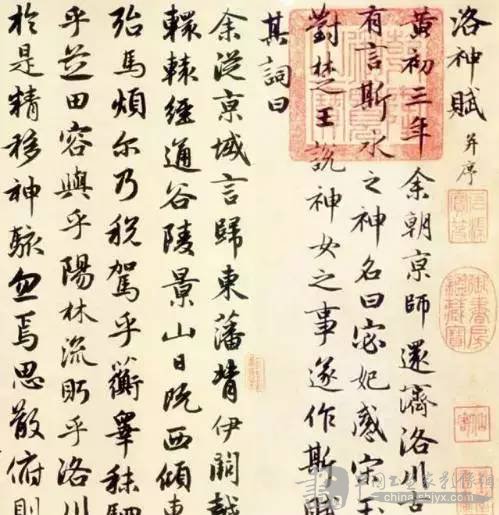 洛神賦 并序
黃初三年余朝京師還濟洛川古
有言斯水之神名曰宓妃感宋玉
對楚王說神女之事遂作斯賦
其詞曰
余從京域言歸東藩背伊闕越
轘轅經通谷陵景山日既西傾車
殆馬煩爾乃稅駕乎蘅皋秣駟
乎芝田容與乎陽林流眄乎洛川
於是精移神駭忽焉思散俯則
china.shjyx.com